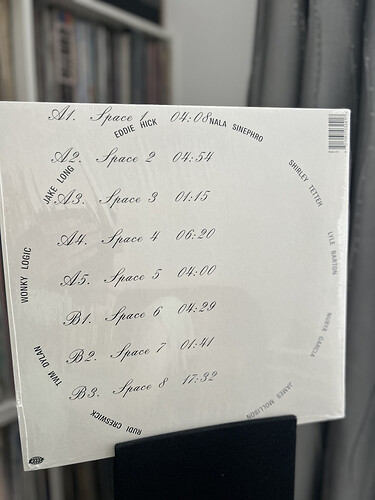 A1. Space 1 04:08
A2. Space 2 04:54
A3. Space 3 01:15
A4. Space 4 06:20
A5. Space 5 04:00
B1. Space 6 04:29
B2. Space 7 01:41
B3. Space 8 17:32
EDDIE HICK
NALA SINEPHRO
SHIRLEY TETTEH
LYLE BARTON
NUBYA GARCIA
JAMES MOLLISON
RUDI CRESWICK
TWM DYLAN
WONKY LOGIC
JAKE LONG